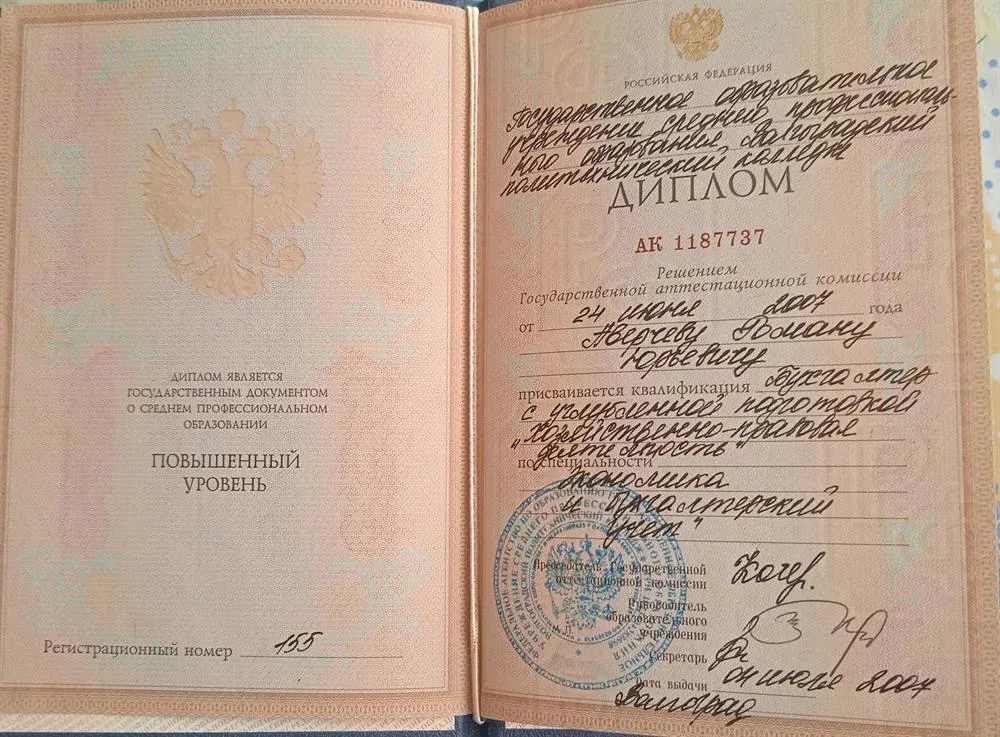 ДИПЛОМ ЯВЛЯЕТСЯ
ГОСУДАРСТВЕННЫМ ДОКУМЕНТОМ
О СРЕДНЕМ ПРОФЕССИОНАЛЬНОМ
ОБРАЗОВАНИИ
ПОВЫШЕННЫЙ
УРОВЕНЬ
Регистрационный номер 155
РОССИЙСКАЯ ФЕДЕРАЦИЯ
Государственное образовательное
учреждение среднего профессиональ-
ного образования Волгоградский
политехнический колледж
ДИПЛОМ
АК 1187737
Решением
Государственной аттестационной комиссии
от 24 июня 2007 года
Аверчеву Роману
Юрьевичу
присваивается квалификация Бухгалтер
с углубленной подготовкой
"Хозяйственно-правовая
деятельность"
по специальности
Экономика
и бухгалтерский
учет"
Председатель Государственной
аттестационной комиссии
Руководитель
образовательного
учреждения
Секретарь
Дата выдачи 04 июля 2007
Волгоград